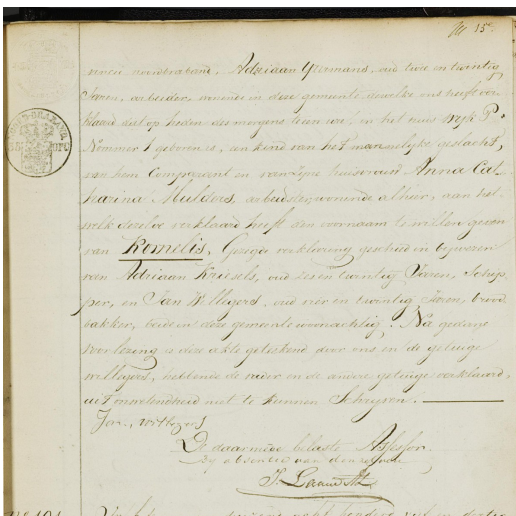 15
Noordbraband, Adriaan IJzermans, oud twee en twintig
Jaren, arbeider, wonende in deze gemeente, dewelke ons heeft ver
klaard dat op heden des morgens tien ure, in het huis wijk P
Nommer 1 geboren is, een kind van het mannelijke geslacht,
van hem Comparant en van zijne huisvrouw Anna Cat
harina Mulders, arbeidster wonende alhier, aan het
welk dezelve verklaard heeft den voornaam te willen geven
van Kornelis, Gezegde verklaring geschied in bijwezen
van Adriaan Kriesels, oud zes en twintig Jaren, Schip
per, en Jan Willegers, oud vier en twintig Jaren, brood
bakker, beide in deze gemeente woonachtig. Na gedane
voorlezing is deze akte getekend door ons en de getuige
Willegers, hebbende de vader en de andere getuige verklaard,
uit onwetendheid niet te kunnen Schrijven.
Jan Willegers
De daarmede belaste Assessor
Bij absentie van den